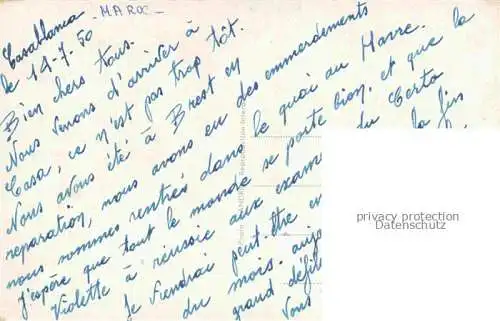 - MAROC -
Casablanca
le 14-7-50
Bien chers tous.
Nous venons d'arriver à
Casa, ce n'est pas trop tôt.
Nous avons été à Brest en
reparation, nous avons eu des emmerdements
nous sommes rentrés dans le quai au Havre.
J'espère que tout le monde se porte bien, et que la
Violette à réussie aux exam du Certa
Je viendrai peut-être en la fin
du mois. aujo
grand défilé
Vous
privacy protection
Datenschutz